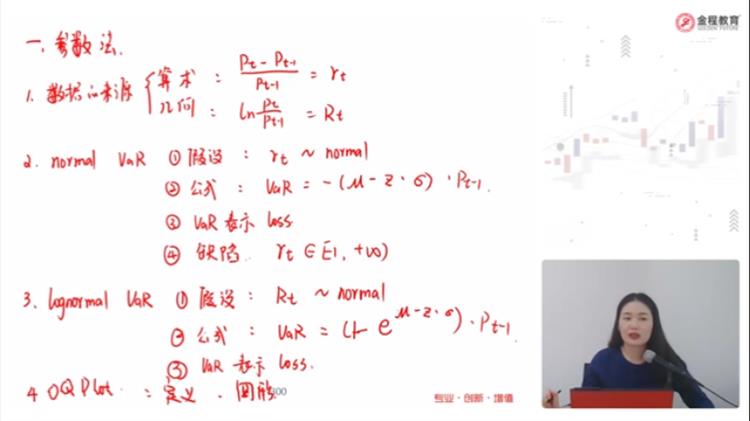 一、参数法.
1. 数据的来源 { 算术 : (Pt - Pt-1)/Pt-1 = rt
几何 : ln Pt/Pt-1 = Rt
2. normal VaR ① 假设 : rt ~ normal
② 公式 : VaR = -(μ - z·σ)·Pt-1.
③ VaR 表示 loss
④ 缺陷. rt ∈ [-1, +∞)
3. lognormal VaR ① 假设 : Rt ~ normal
② 公式 : VaR = (1- e^(μ-z·σ))·Pt-1.
③ VaR 表示 loss.
4 QQ Plot : 定义 、图形
专业·创新·增值
金程教育
GOLDEN FUTURE